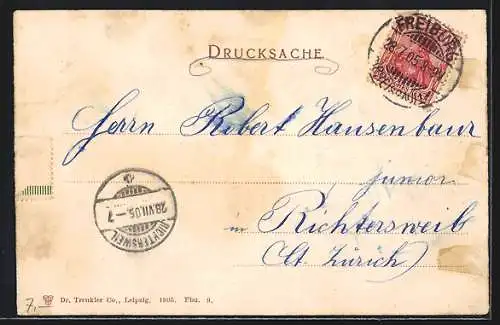 DRUCKSACHE
FREIBURG
28.7.05.
Herrn Robert Hausenbaur
junior
in Richtersweil
Ct. Zürich)
28.VII.05.–7
RICHTERSWEIL
7,–
Dr. Trenkler Co., Leipzig. 1905. Fbu. 9.